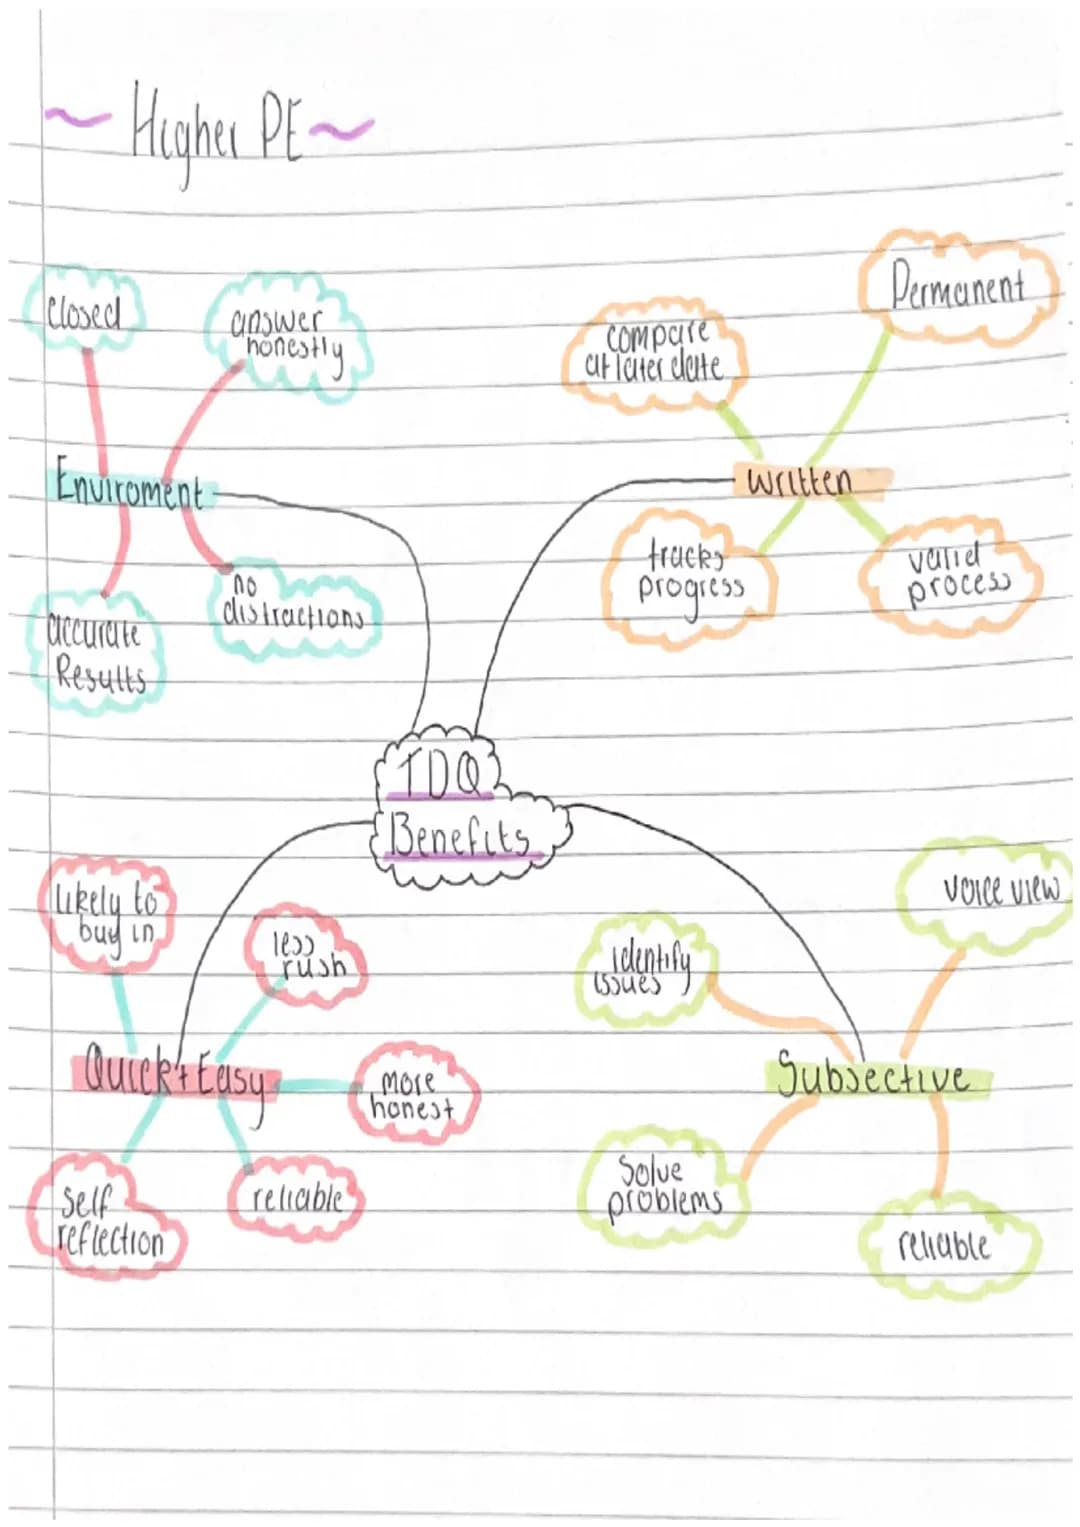 ~ Higher PE ~
Closed
answer
honestly
Enviroment
accurate
Results
no
distractions
compare
at later date
Permanent
written
tracks
progress
valid
process
TDQ
Benefits
likely to
buy in
less
rush
Quick + Easy
more
honest
Self
reflection
reliable
identify
issues
voice view
Subjective
Solve
problems
reliable